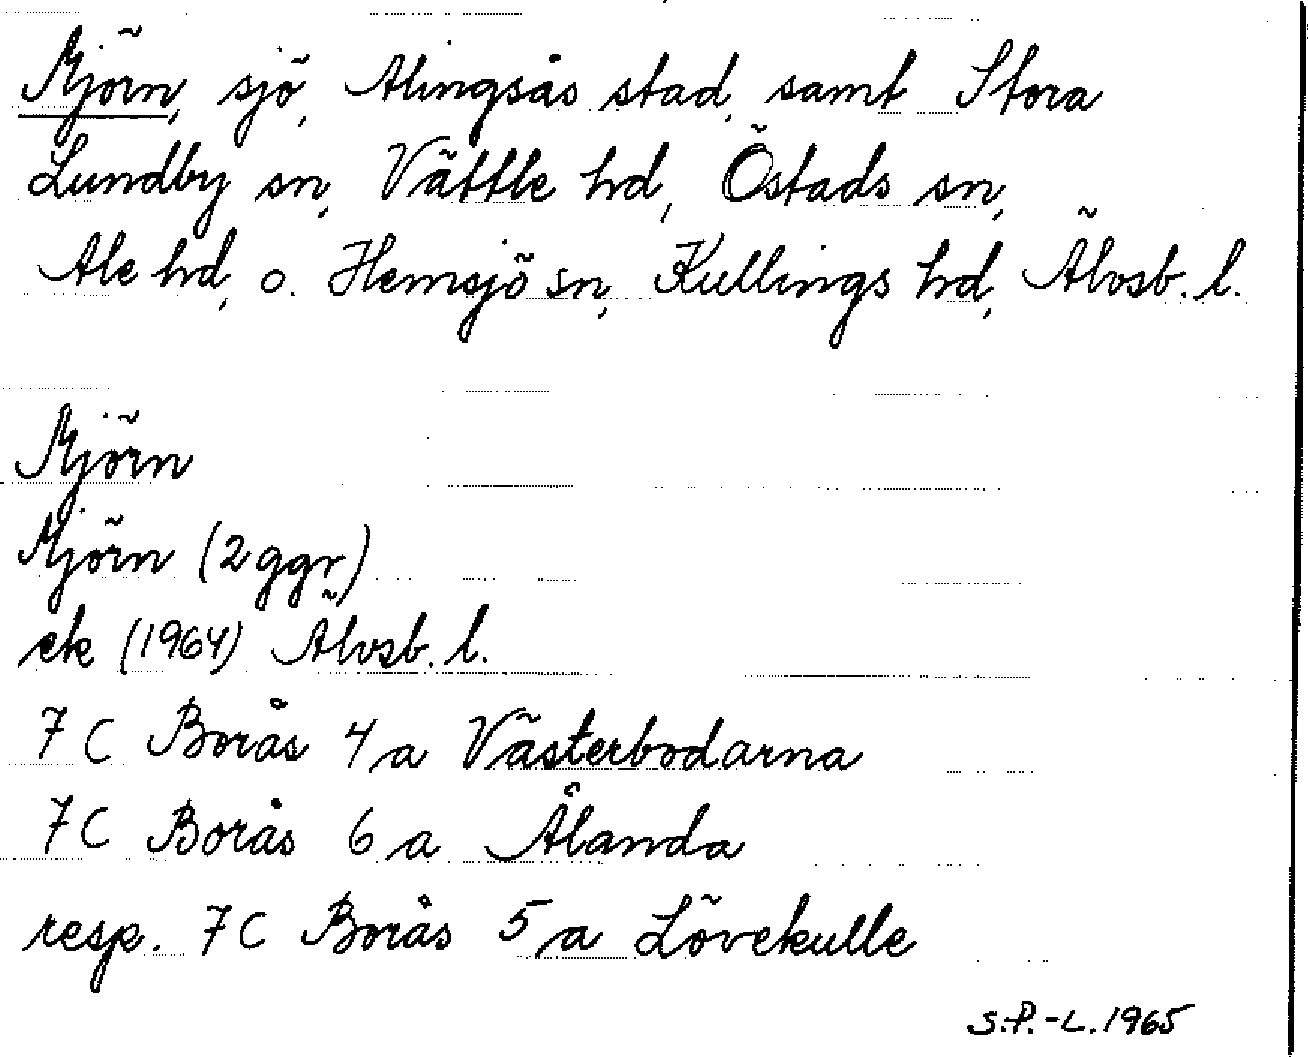 Mjörn, sjö, Alingsås stad, samt Stora
Lundby sn, Vättle hd, Östads sn,
Ale hd, o. Hemsjö sn, Kullings hd, Älvsb. l.
Mjörn
Mjörn (2 ggr)
ek (1964) Älvsb. l.
7 C Borås 4 a Västerbodarna
7 C Borås 6 a Ålanda
resp. 7 C Borås 5 a Lövekulle
S.P.-L. 1965